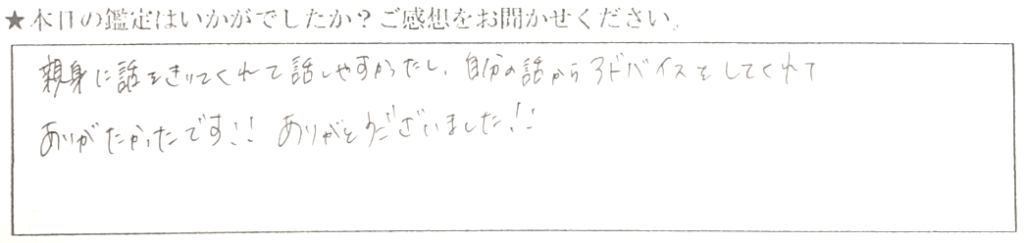 ★本日の鑑定はいかがでしたか？ご感想をお聞かせください。
親身に話をきいてくれて話しやすかったし、自分の話からアドバイスをしてくれて
ありがたかったです!! ありがとうございました!!